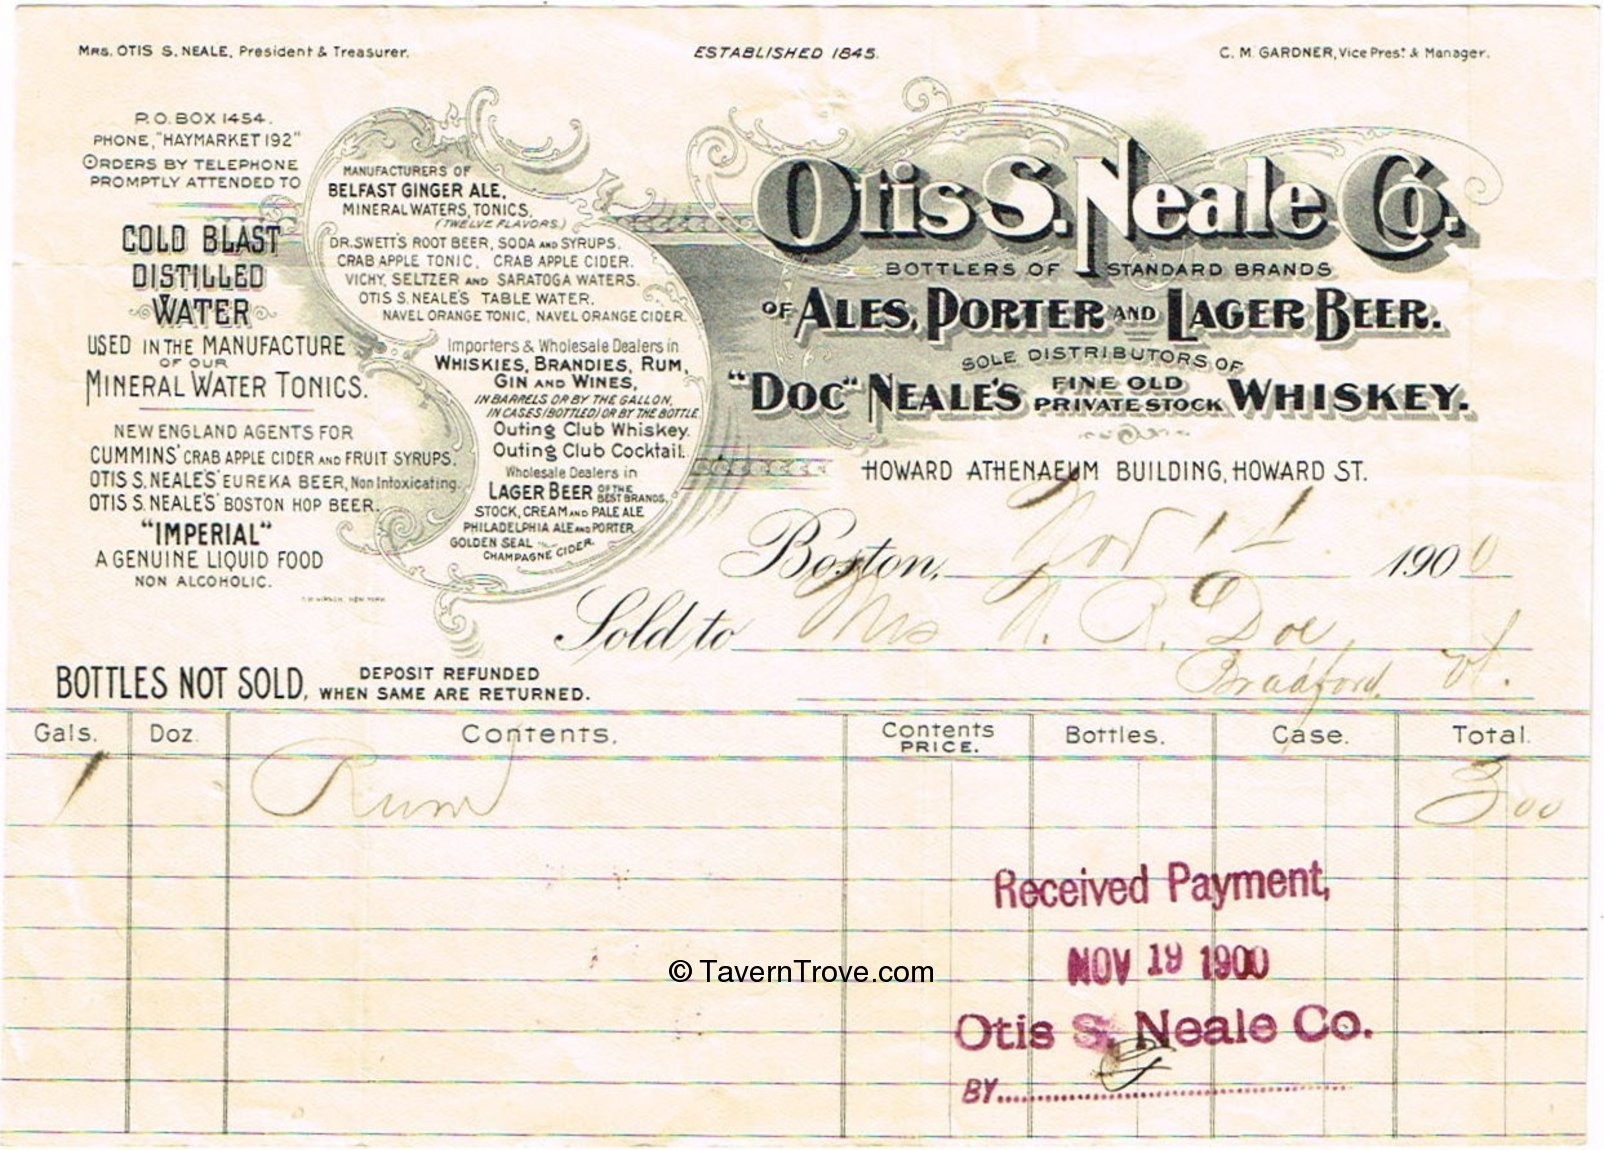 Mrs. OTIS S. NEALE, President & Treasurer.
ESTABLISHED 1845.
C. M. GARDNER, Vice Prest. & Manager.
P. O. BOX 1454.
PHONE, "HAYMARKET 192"
ORDERS BY TELEPHONE
PROMPTLY ATTENDED TO
COLD BLAST
DISTILLED
WATER
USED IN THE MANUFACTURE
OF OUR
MINERAL WATER TONICS.
NEW ENGLAND AGENTS FOR
CUMMINS' CRAB APPLE CIDER AND FRUIT SYRUPS.
OTIS S. NEALE'S' EUREKA BEER, Non Intoxicating.
OTIS S. NEALE'S' BOSTON HOP BEER.
"IMPERIAL"
A GENUINE LIQUID FOOD
NON ALCOHOLIC.
MANUFACTURERS OF
BELFAST GINGER ALE,
MINERAL WATERS, TONICS,
(TWELVE FLAVORS.)
DR. SWETT'S ROOT BEER, SODA AND SYRUPS.
CRAB APPLE TONIC, CRAB APPLE CIDER.
VICHY, SELTZER AND SARATOGA WATERS.
OTIS S. NEALE'S TABLE WATER.
NAVEL ORANGE TONIC, NAVEL ORANGE CIDER.
Importers & Wholesale Dealers in
WHISKIES, BRANDIES, RUM,
GIN AND WINES,
IN BARRELS OR BY THE GALLON,
IN CASES (BOTTLED) OR BY THE BOTTLE.
Outing Club Whiskey.
Outing Club Cocktail.
Wholesale Dealers in
LAGER BEER OF THE BEST BRANDS.
STOCK, CREAM AND PALE ALE
PHILADELPHIA ALE AND PORTER
GOLDEN SEAL
CHAMPAGNE CIDER.
Otis S. Neale Co.
BOTTLERS OF STANDARD BRANDS
OF ALES, PORTER AND LAGER BEER.
SOLE DISTRIBUTORS OF
"DOC" NEALE'S FINE OLD PRIVATE STOCK WHISKEY.
HOWARD ATHENAEUM BUILDING, HOWARD ST.
Boston, Nov 1 1900
Sold to Mrs N. R. Doe
Bradford, Vt.
BOTTLES NOT SOLD, DEPOSIT REFUNDED WHEN SAME ARE RETURNED.
Gals. Doz. Contents. Contents PRICE. Bottles. Case. Total.
1 Rum 3 00
Received Payment,
NOV 19 1900
© TavernTrove.com
Otis S. Neale Co.
BY